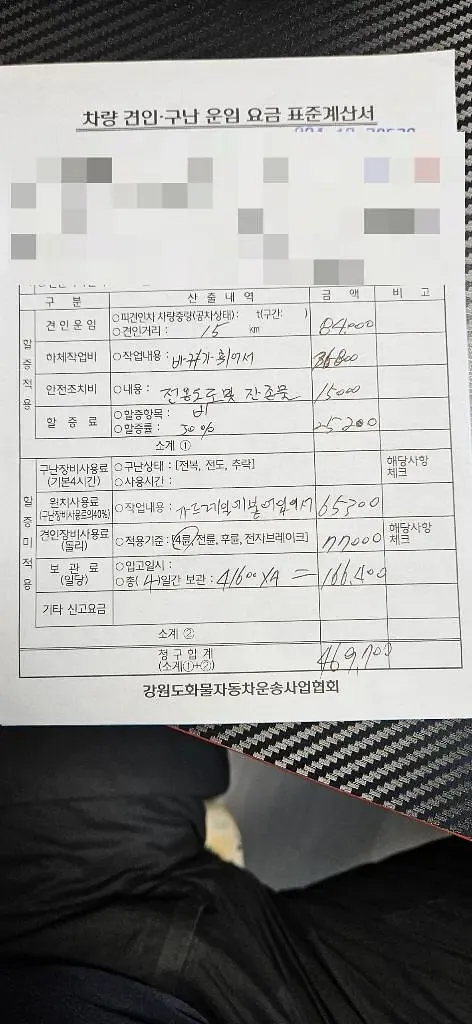 차량 견인·구난 운임 요금 표준계산서
구 분 산 출 내 역 금 액 비 고
할증적용
견인운임 ○피견인차 차량중량(공차상태): t(구간: )
○견인거리: 15 km 84,000
하체작업비 ○작업내용: 바퀴가 휘어서 36800
안전조치비 ○내용: 전용도로 및 잔존물 15000
할증료 ○할증항목: 비
○할증률: 30% 25200
소계 ①
할증미적용
구난장비사용료 (기본4시간) ○구난상태: [전복, 전도, 추락]
○사용시간: 해당사항 체크
윈치사용료 (구난장비사용료의40%) ○작업내용: 65300
견인장비사용료 (돌리) ○적용기준: [4륜, 전륜, 후륜, 전자브레이크] 77000 해당사항 체크
보관료 (일당) ○입고일시:
○총(4)일간 보관: 41600 X4 = 166,400
기타 신고요금
소계 ②
청구합계 (소계①+②) 469,700
강원도화물자동차운송사업협회